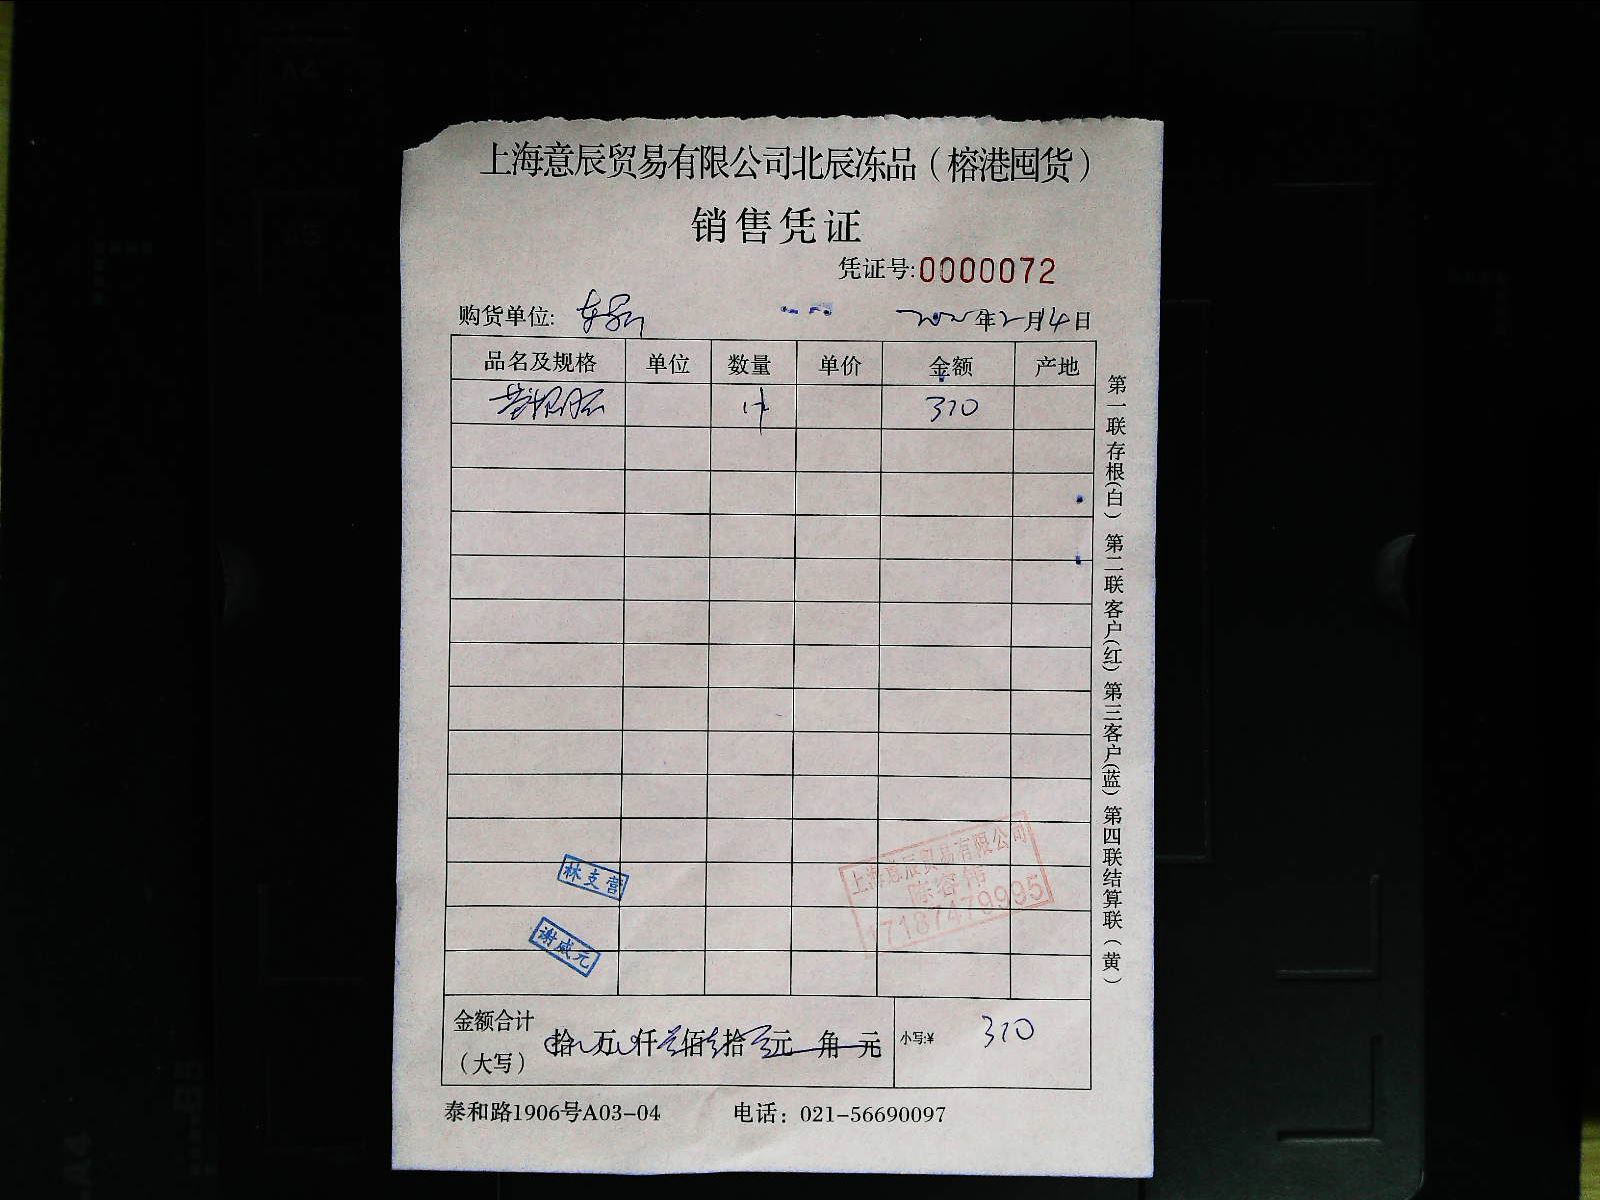 上海意辰贸易有限公司北辰冻品（榕港囤货）
销售凭证
凭证号:0000072
购货单位:
年2月14日
品名及规格 单位 数量 单价 金额 产地
1件 310
林支营
谢咸元
上海意辰贸易有限公司
陈容伟
17187479995
金额合计（大写） 拾 万 仟 佰 拾 元 角 元 小写:¥ 310
泰和路1906号A03-04 电话：021-56690097
第一联存根（白） 第二联客户（红） 第三客户（蓝） 第四联结算联（黄）